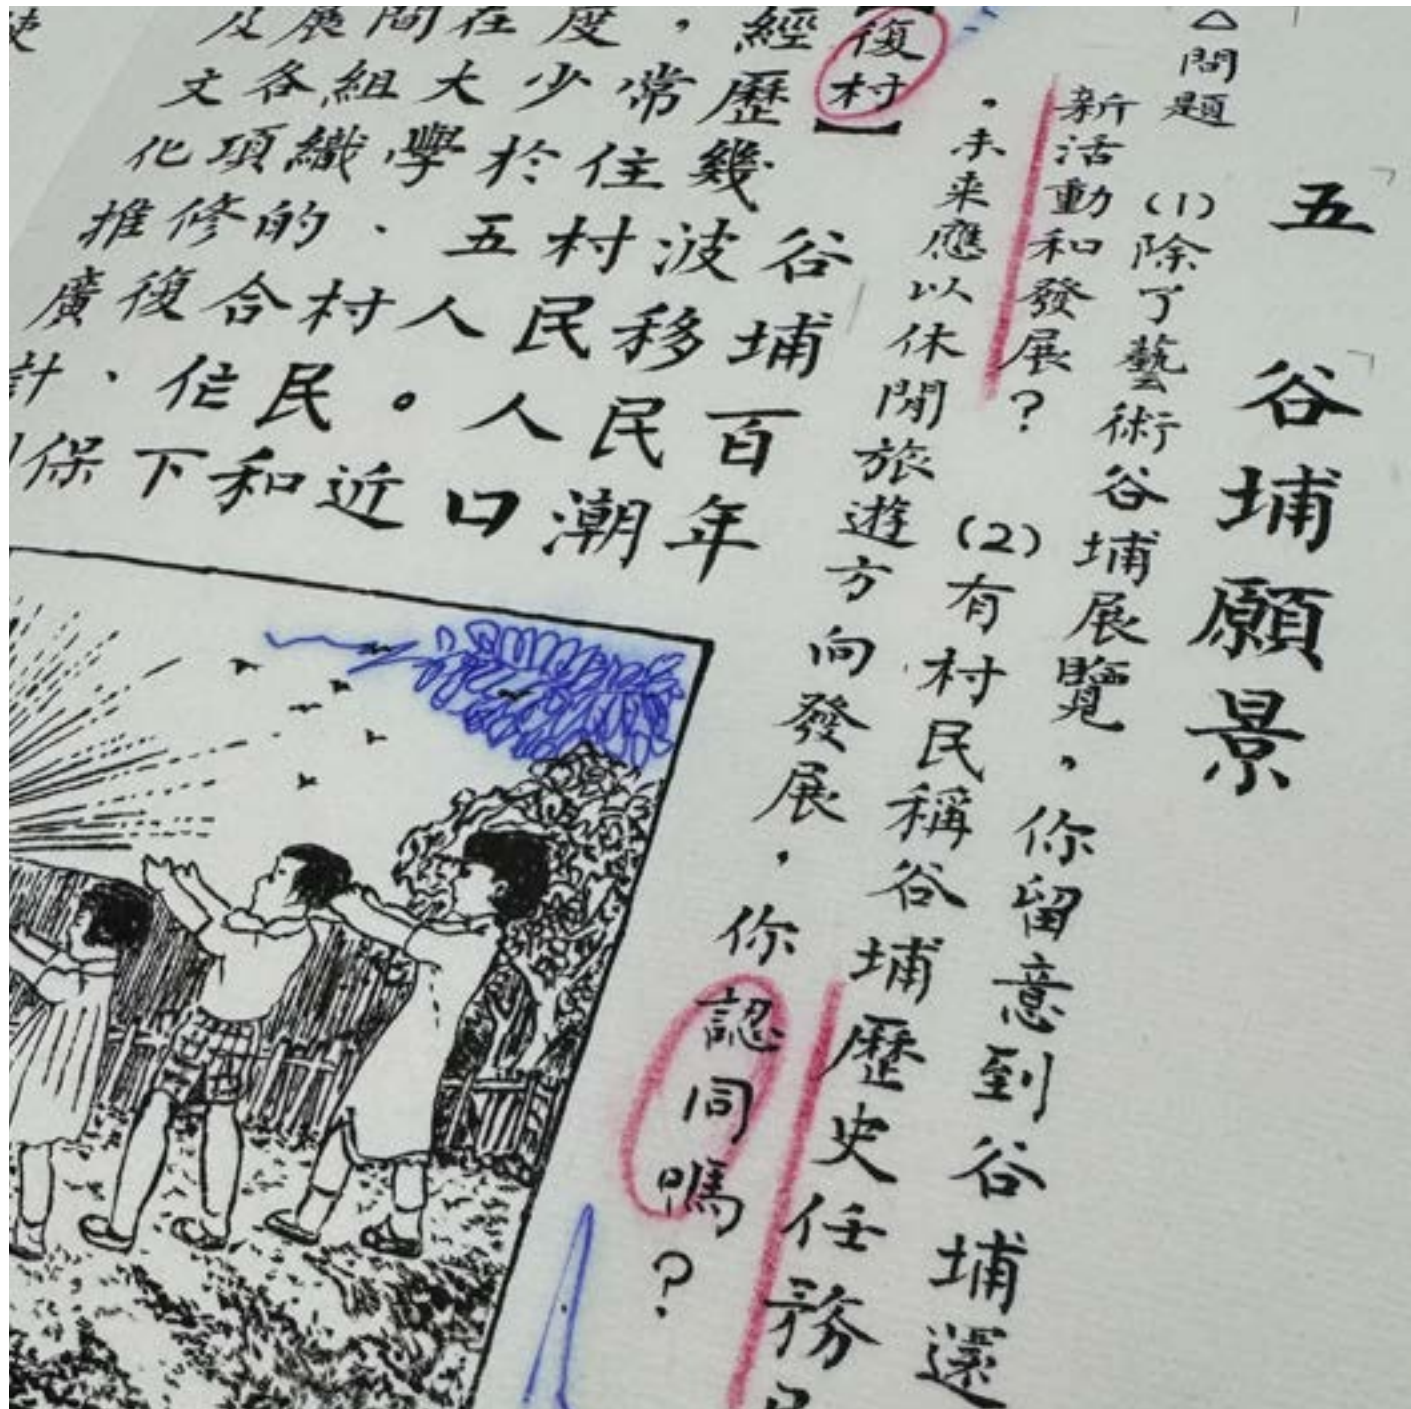 五谷埔願景
△問題 (1)除了藝術谷埔展覽，你留意到谷埔還
新活動和發展？ (2)有村民稱谷埔歷史任務
，未來應以休閒旅遊方向發展，你認同嗎？
【復村】
谷埔百年
經歷幾波移民潮
，常住村民人口
度少於五人。近
在大學、村民和
間組織的合作下
展各項修復、保
及文化推廣計